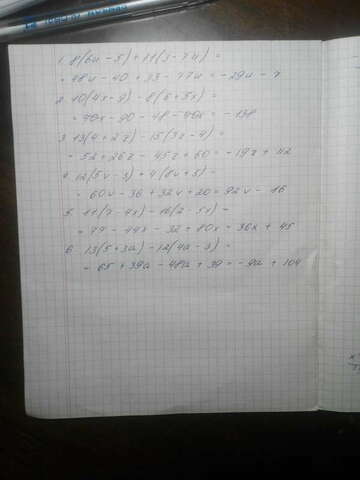 1. 8(6u-5)+11(3-7u)=
=48u-40+33-77u=-29u-7
2. 10(4x-9)-8(6+5x)=
=40x-90-48-40x=-138
3. 13(4+2z)-15(3z-4)=
=52+26z-45z+60=-19z+112
4. 12(5v-3)+4(8v+5)=
=60v-36+32v+20=92v-16
5. 11(7-4x)-16(2-5x)=
=77-44x-32+80x=36x+45
6. 13(5+3a)-12(4a-3)=
=65+39a-48a+39=-9a+104